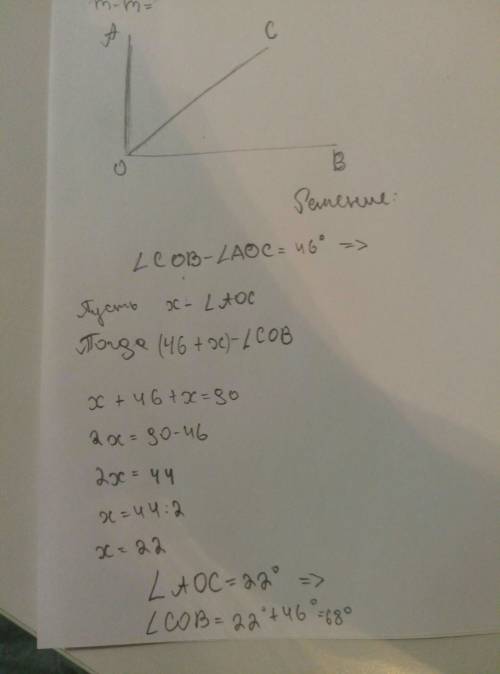 m-m=
A
C
O
B
Решение:
∠COB-∠AOC=46° =>
Пусть x-∠AOC
Тогда (46+x)-∠COB
x+46+x=90
2x=90-46
2x=44
x=44:2
x=22
∠AOC=22° =>
∠COB=22°+46°=68°